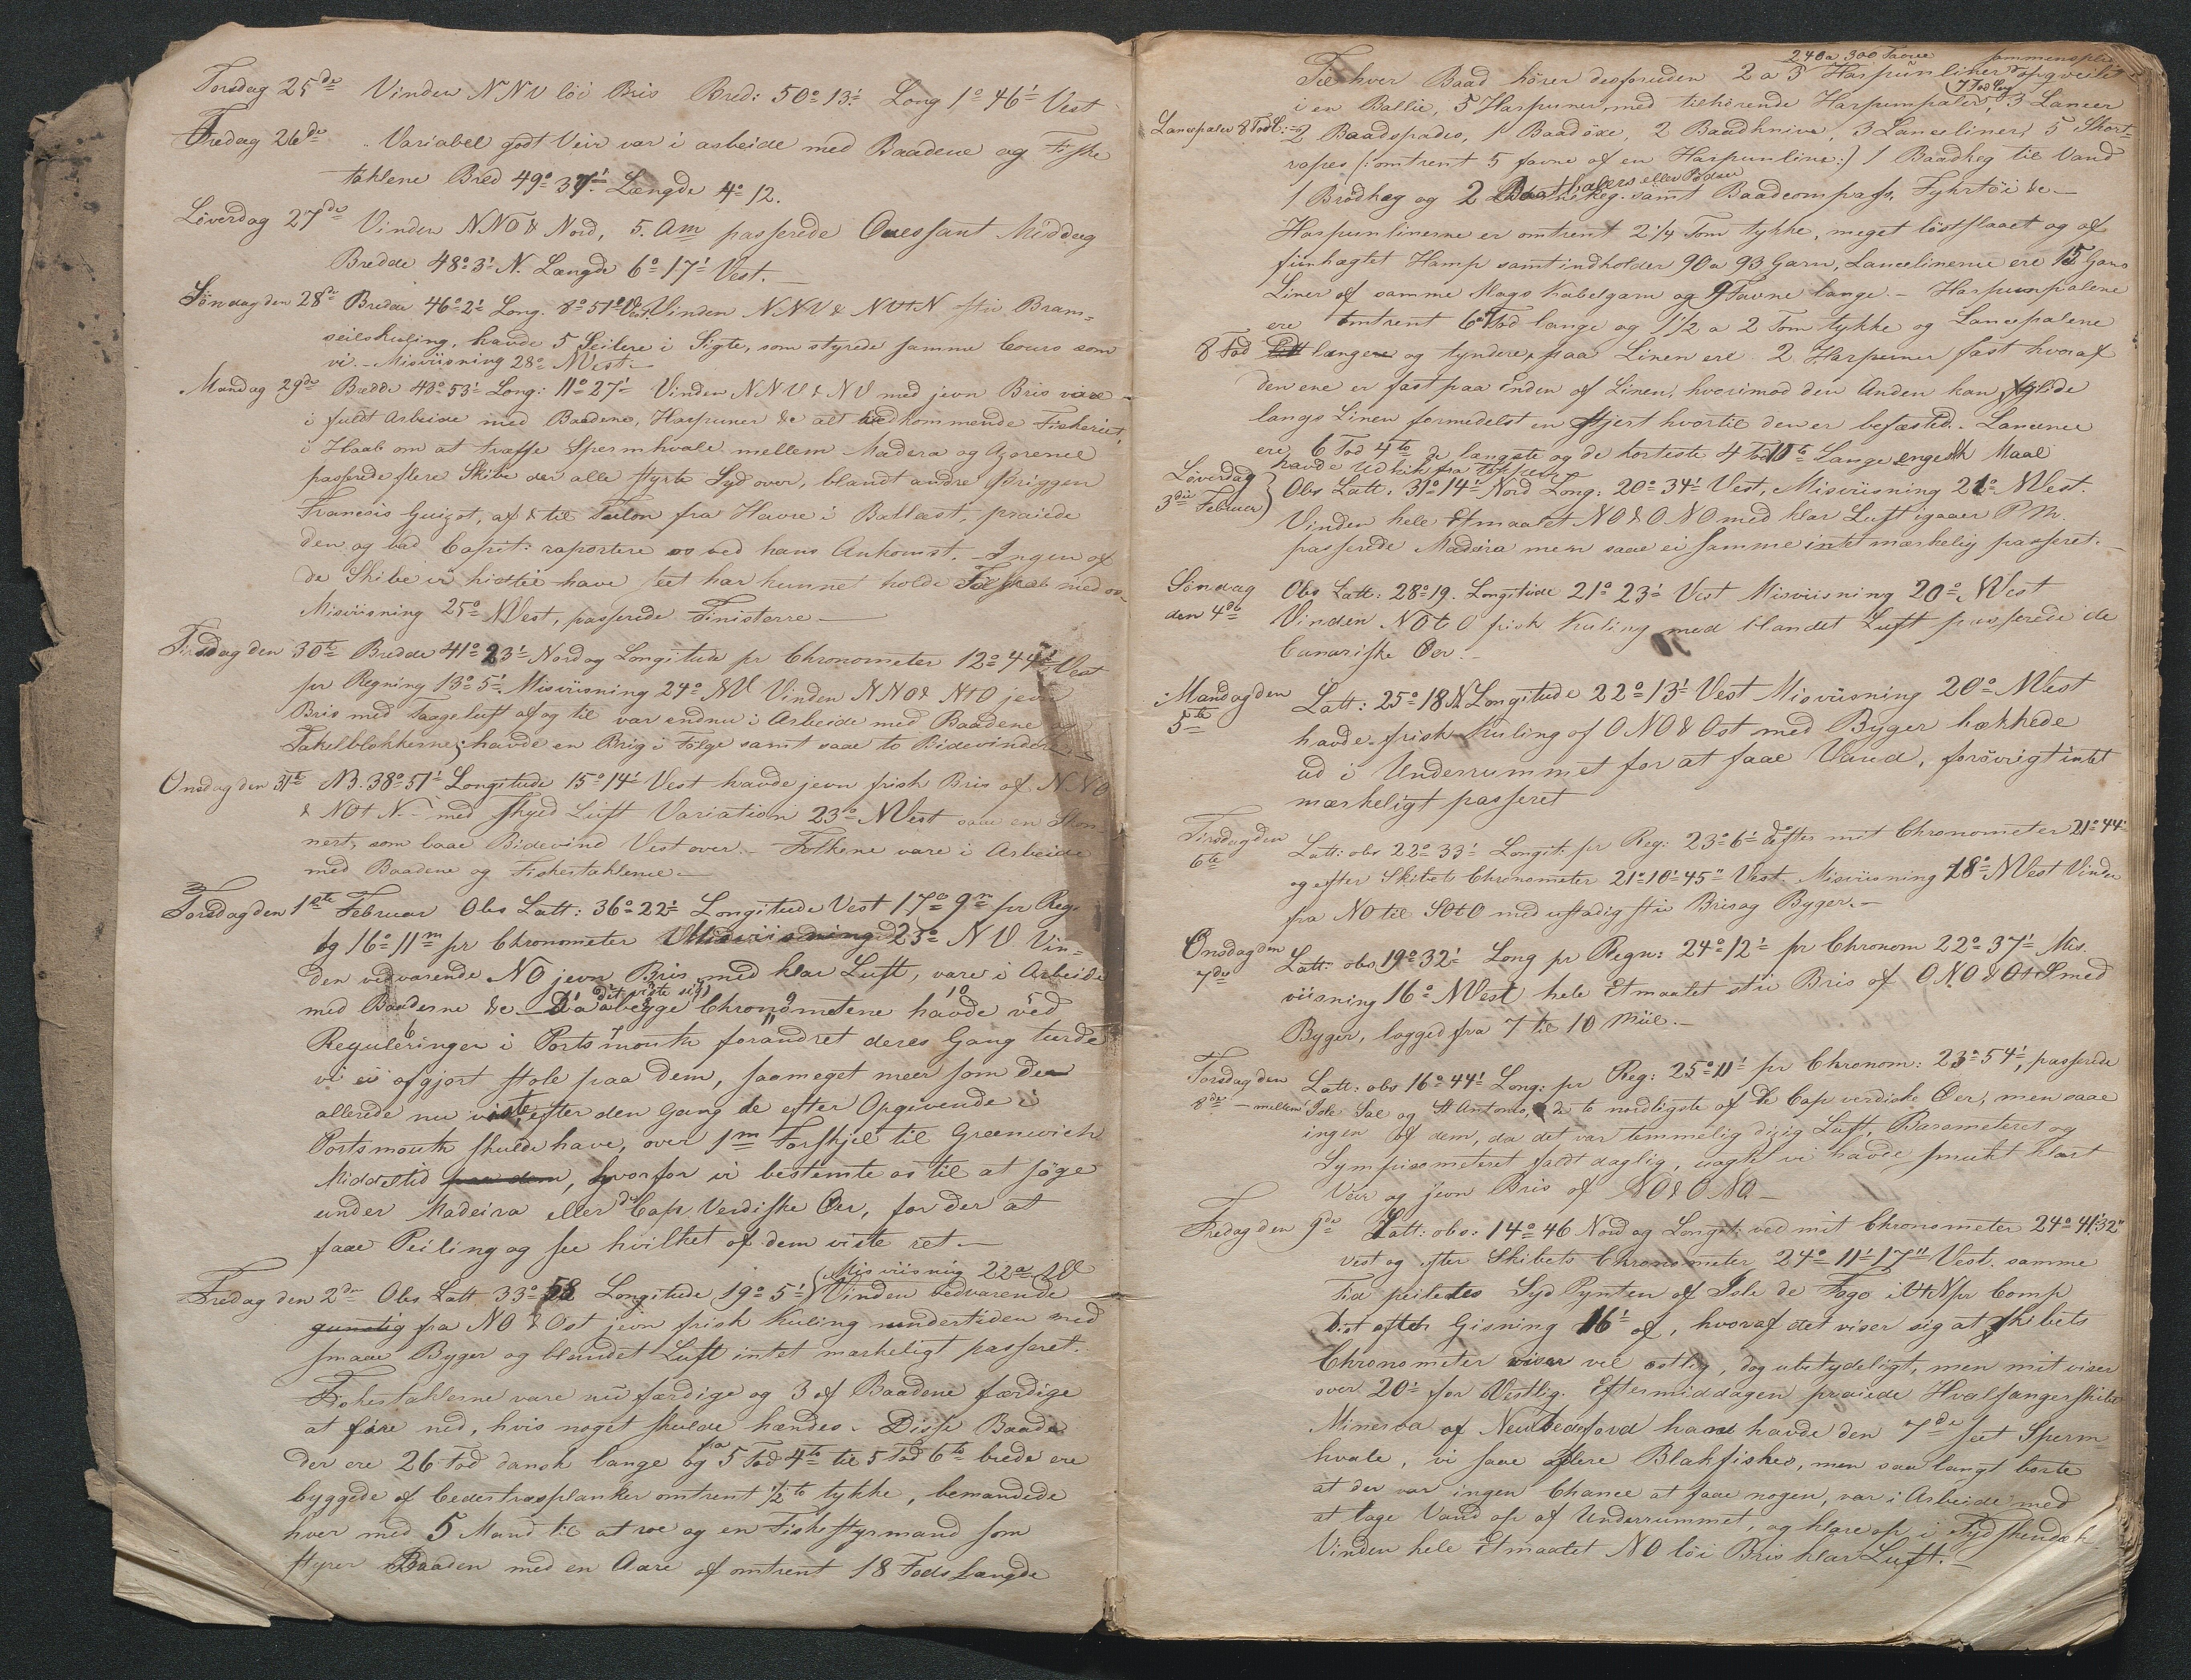 Torsdag 25de Vinden NNV löi Bris Bred: 50° 13' Long 1° 46' Vest
Fredag 26de Variabel godt Veir var i arbeide med Baadene og Fiske
taklene Bred 49° 37' Længde 4° 12.
Löverdag 27de Vinden NNO & Nord, 5. Am passerede Ouessant Middag
Bredde 48° 3' N. Længde 6° 17' Vest.
Söndag den 28de Bredde 46° 2' Long. 8° 51' Vest. Vinden NNV & NVtN stiv Bram-
seilskuling, havde 5 Seilere i Sigte, som styrede samme Cours som
vi. - Misviisning 28° NVest. -
Mandag 29de Bredde 43° 53' Long: 11° 27' Vinden NNV & NV med jevn Bris vare
i fuldt Arbeide med Baadene, Harpuner &c alt vedkommende Fiskeriet,
i Haab om at træffe Spermhvale mellem Madera og Azorerne
passerede flere Skibe der alle styrte Sydover, blandt andre Briggen
Francois Guizot, af & til fra Havre i Ballast, praiede
den og bad Capit: raportere os ved hans Ankomst. - Ingen af
de Skibe vi hidtil have seet har kunnet holde Følskab med os
Misviisning 25° NVest, passerede Finisterre -
Tirsdag den 30te Bredde 41° 23' Nord og Longitude pr Chronometer 12° 44' Vest
pr Regning 13° 5'. Misviisning 24° NV Vinden NNO & NtO jevn
Bris med Taageluft af og til var endnu i Arbeide med Baadene og
Takelblokkerne; havde en Brig i Følge samt saae to Bidevindere
Onsdag den 31te NB. 38° 51' Longitude 15° 14' Vest havde jevn frisk Bris af NNO
& NOtN. - med Skyed Luft Variation 23° NVest saae en Skon-
nert, som laae Bidevind Vestover. - Folkene vare i Arbeide
med Baadene og Fisketaklerne -
Torsdag den 1ste Februar Obs Latt: 36° 22' Longitude Vest 17° 9m pr Reg.
og 16° 11m pr Chronometer Misviisning 23° NV Vin-
den vedvarende NO jevn Bris med klar Luft, vare i Arbeide
med Baadene &c - Da det viste sig begge Chronometerne havde ved
Reguleringen i Portsmouth forandret deres Gang turde
vi ei afgjort stole paa dem, saameget meer som de
allerede nu viste, efter den Gang de efter Opgivende i
Portsmouth skulde have, over 1m Forskjel til Greenwich
Middeltid paa dem, hvorfor vi bestemte os til at søge
under Madeira eller de Cap Verdiske Øer, for der at
faae Peiling og see hvilket af dem viste ret -
Misviisning 22° NV
Fredag den 2den Obs Latt 33° 58 Longitude 19° 5' Vinden vedvarende
gunstig fra NO & Ost jevn frisk Kuling undertiden med
smaae Byger og blandet Luft intet mærkeligt passeret.
Fisketaklerne vare nu færdige og 3 af Baadene færdige
at fire ned, hvis noget skulde hændes. - Disse Baade
der ere 26 Fod dansk lange og fra 5 Fod 4to til 5 Fod 6to brede ere
byggede af Cedertræsplanker omtrent 1/2 to tykke, bemandede
hver med 5 Mand til at roe og en Fiskestyrmand som
styrer Baaden med en Aare af omtrent 18 Fods Længde
240 a 300 Favne
Til hver Baad hörer desforuden 2 a 3 Harpunliner opqveilet
7 Fod lang
i en Ballie, 5 Harpuner med tilhörende Harpunpæler, 3 Lancer
Lancepæler 8 Fod l: - 2 Baadspades, 1 Baadöxe, 2 Baadknive, 3 Lanceliner, 5 Short-
ropes (: omtrent 5 favne af en Harpunline :) 1 Baadkeg til Vand
1 Brödkeg og 2 Boathalers eller Pöser samt Baadcompass, Fyhrtöi &c -
Harpunlinerne er omtrent 2 1/4 Tom tykke, meget löstslaaet og af
fiinhægtet Hamp samt indholder 90 a 93 Garn, Lancelinerne ere 15 Gans
Liner af samme Slags Kabelgarn og 9 Favne lange. - Harpunpælene
ere omtrent 6 a 7 Fod lange og 1 1/2 a 2 Tom tykke og Lancepælene
8 Fod længere og tyndere, paa Linen ere 2 Harpuner fast hvoraf
den ene er fast paa Enden af Linen, hvorimod den Anden kan glide
langs Linen formedelst en Stjert hvortil den er befæsted. - Lancerne
ere 6 Fod 4to de længste og de korteste 4 Fod 10to Lange engelsk Maal
havde Udkik fra Toppene
Löverdag 3die Februar Obs Latt. 31° 14' Nord Long: 20° 34' Vest, Misviisning 21° NVest.
Vinden hele Etmaalet NO & ONO med klar Luft igaaer P.M.
passerede Madera men saae ei samme intet mærkelig passeret. -
Söndag den 4de Obs Latt: 28° 19. Longitude 21° 23' Vest Misviisning 20° NVest
Vinden NOtO frisk Kuling med blandet Luft passerede de
Canariske Øer. -
Mandag den 5te Latt: 25° 18 N Longitude 22° 13' Vest Misviisning 20° NVest
havde frisk Kuling af ONO & Ost med Byger hækkede
ud i Underrummet for at faae Vand, forövrigt intet
mærkeligt passeret
Tirsdag den 6te Latt: obs 22° 33' Longit: pr Reg: 23° 6' do efter mit Chronometer 21° 44'
og efter Skibets Chronometer 21° 10' 45" Vest. Misviisning 18° NVest Vinden
fra NO til SOtO med ustadig stiv Bris og Byger. -
Onsdag den 7de Latt: obs 19° 32' Long pr Regn: 24° 12' pr Chronom 22° 37' Mis.
viisning 16° NVest hele Etmaalet stiv Bris af ONO & OtS med
Byger, logged fra 7 til 10 Miil. -
Torsdag den 8de Latt: obs 16° 44' Long: pr Reg: 25° 11' pr Chronom: 23° 54', passerede
mellem Isle Sal og St Antonio, de to nordligste af de Cap verdiske Øer, men saae
ingen af dem, da det var temmelig dizig Luft, Barometeret og
Sympisometeret faldt daglig, uagtet vi havde smukt klart
Veir og jevn Bris af NO & ONO -
Fredag den 9de Latt: obs: 14° 46 Nord og Longit: ved mit Chronometer 24° 41' 32"
Vest og efter Skibets Chronometer 24° 11' 17" Vest. samme
Tid peiledes Syd Pynten af Isle de Fogo i VtN pr Comp
Dist efter Gisning 16' af, hvoraf det viser sig at Skibets
Chronometer viser vel østlig, dog ubetydeligt, men mit viser
over 20' for Westlig. Eftermiddagen praiede Hvalfangerskibet
Minerva af New Bedford han havde den 7de seet Sperm-
hvale, vi saae flere Blakfiskes, men saa langt borte
at der var ingen Chance at faae nogen, var i Arbeide med
at tage Vand op af Underrummet, og klare op i
Vinden hele Etmaalet NO löi Bris klar Luft. -